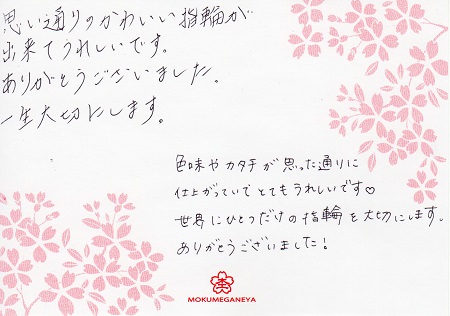 思い通りのかわいい指輪が
出来てうれしいです。
ありがとうございました。
一生大切にします。
色味やカタチが思った通りに
仕上がっていてとてもうれしいです♡
世界にひとつだけの指輪を大切にします。
ありがとうございました!
MOKUMEGANEYA